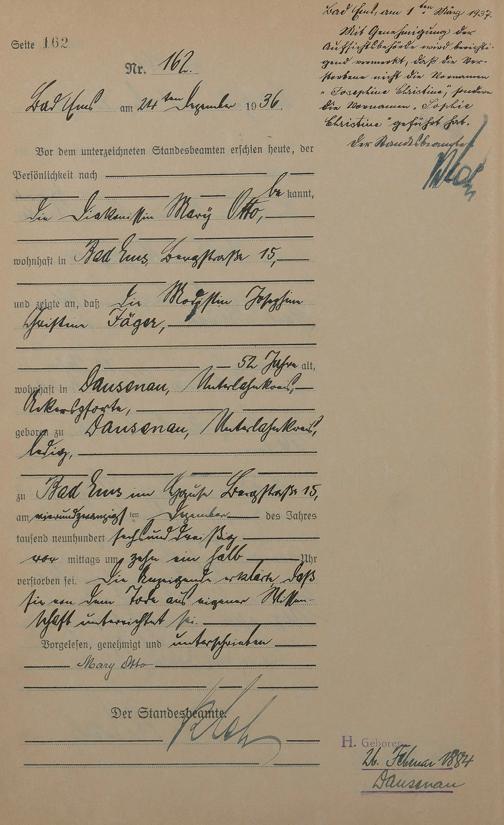 Seite 162
Nr. 162.
Bad Ems am 24 ten Dezember 1936.
Vor dem unterzeichneten Standesbeamten erschien heute, der
Persönlichkeit nach
be kannt,
die Diakonissin Mary Otto,
wohnhaft in Bad Ems, Bergstraße 15,
und zeigte an, daß die Josephine
Christine Jäger,
52 Jahre alt,
wohnhaft in Dausenau, Unterlahnkreis,
geboren zu Dausenau, Unterlahnkreis,
ledig,
zu Bad Ems im Hause Bergstraße 15,
am vierundzwanzigsten Dezember des Jahres
tausend neunhundert sechsunddreißig
vor mittags um zehn ein halb Uhr
verstorben sei. Die Anzeigende erklärte, daß
sie von dem Tode aus eigener Wissen-
schaft unterrichtet sei.
Vorgelesen, genehmigt und unterschrieben
Mary Otto
Der Standesbeamte.
Bad Ems, am 1 ten März 1937.
Mit Genehmigung der
Aufsichtsbehörde wird berichti-
gend vermerkt, daß die Ver-
storbene nicht die Vornamen
"Josephine Christine", sondern
die Vornamen "Sophie
Christine" geführt hat.
Der Standesbeamte
H. Geboren
26. Februar 1884
Dausenau